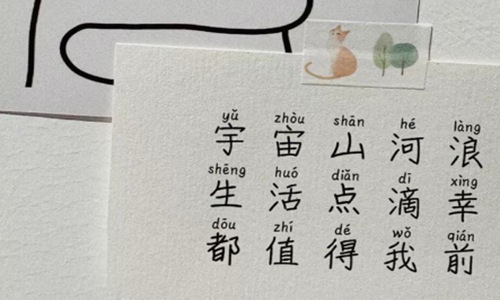 yǔ zhòu shān hé làng
宇宙山河浪
shēng huó diǎn dī xìng
生活点滴幸
dōu zhí dé wǒ qián
都值得我前